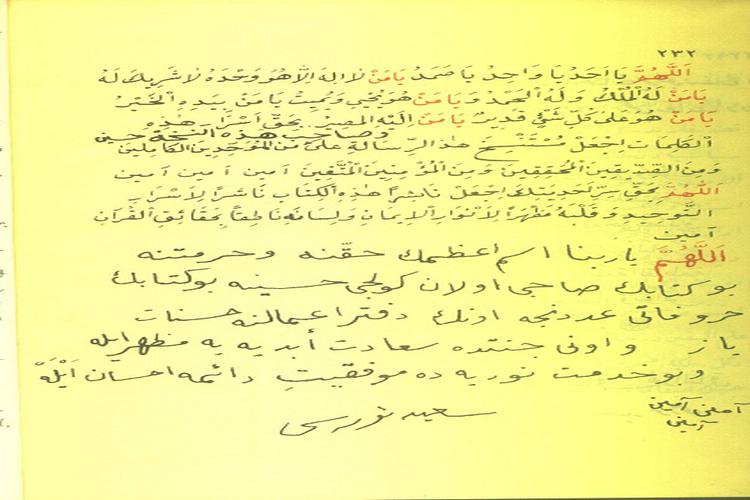 ٢٣٢
اَللّٰهُمَّ يَا اَحَدُ يَا وَاحِدُ يَا صَمَدُ يَا مَنْ لَا اِلٰهَ اِلَّا هُوَ وَحْدَهُ لَا شَرِيكَ لَهُ
يَا مَنْ لَهُ الْمُلْكُ وَلَهُ الْحَمْدُ وَيَا مَنْ هُوَ يُحْيِي وَيُمِيتُ يَا مَنْ بِيَدِهِ الْخَيْرُ
يَا مَنْ هُوَ عَلٰى كُلِّ شَيْءٍ قَدِيرٌ يَا مَنْ اِلَيْهِ الْمَصِيرُ بِحَقِّ اَسْرَارِ هٰذِهِ
وصاحب هذه النسخة حسين
الْكَلِمَاتِ اِجْعَلْ مُسْتَنْسِخَ هٰذِهِ الرِّسَالَةِ مِنَ الْمُوَحِّدِينَ الْكَامِلِينَ
وَمِنَ الصِّدِّيقِينَ الْمُحَقِّقِينَ وَمِنَ الْمُؤْمِنِينَ الْمُتَّقِينَ آمِينَ آمِينَ آمِينَ
اَللّٰهُمَّ بِحَقِّ سِرِّ اَحَدِيَّتِكَ اِجْعَلْ نَاشِرًا هٰذِهِ الْكِتَابِ نَاشِرًا لِاَسْرَارِ
التَّوْحِيدِ وَقَلْبَهُ مَظْهَرًا لِاَنْوَارِ الْاِيمَانِ وَلِسَانَهُ نَاطِقًا بِحَقَائِقِ الْقُرْاٰنِ
آمين
اَللّٰهُمَّ ياربنا اسم اعظمك حقنه وحرمتنه
بو كتابك صاحبى اولان كولجى حسينه بو كتابك
حروفاتى عددنجه اونك دفتر اعمالنه حسنات
ياز واونى جنتده سعادت أبديه يه مظهر ايله
وبو خدمت نوريه ده موفقيت دائمه احسان أيله
آمين آمين آمين
سعيد نورسى